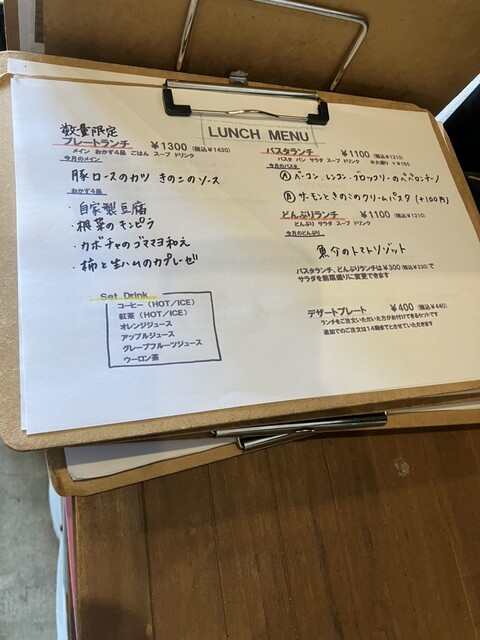 LUNCH MENU
数量限定
プレートランチ ¥1300 (税込¥1430)
メイン おかず4品 ごはん スープ ドリンク
今月のメイン
豚ロースのカツ きのこのソース
おかず4品
・自家製豆腐
・根菜のキンピラ
・カボチャのゴママヨ和え
・柿と生ハムのカプレーゼ
Set Drink
コーヒー (HOT/ICE)
紅茶 (HOT/ICE)
オレンジジュース
アップルジュース
グレープフルーツジュース
ウーロン茶
パスタランチ ¥1100 (税込¥1210)
パスタ パン サラダ スープ ドリンク ※大盛り +¥165
今月のパスタ
Ⓐ ベーコン、レンコン、ブロッコリーのペペロンチーノ
Ⓑ サーモンときのこのクリームパスタ (+100円)
どんぶりランチ ¥1100 (税込¥1210)
どんぶり サラダ スープ ドリンク
今月のどんぶり
魚介のトマトリゾット
パスタランチ、どんぶりランチは¥300(税込¥330)で
サラダを前菜盛りに変更できます
デザートプレート ¥400 (税込¥440)
ランチをご注文いただいた方がお付けできるセットです
追加でのご注文は14時までとさせていただきます